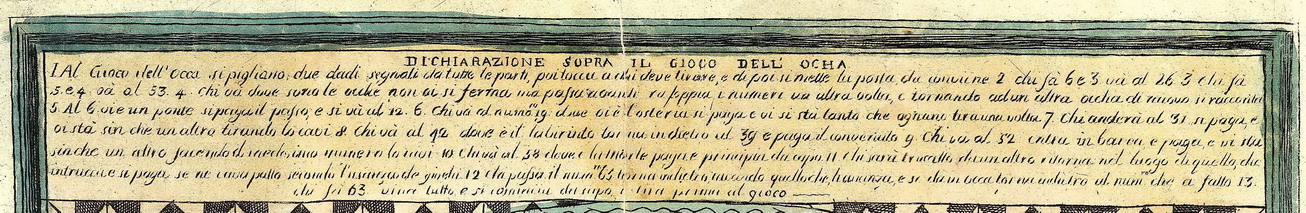 DICHIARAZIONE SOPRA IL GIOCO DELL' OCHA
1 Al Gioco dell'occa si pigliano due dadi segnati da tutte le parti, poi tocca a chi deve tirare, e di poi si mette la posta che conviene 2 chi fà 6 e 3 và al 26. 3 chi fà
5. e 4 và al 53. 4. chi và dove sono le ocche non vi si ferma ma passa avanti i numeri un altra volta, e tornando ad un altra occha di nuovo si racconta
5. Al 6. vie un ponte si paga il passo, e si và al 12. 6. chi và al num.o 19. dove vi è l'osteria si paga e vi si stà tanto che ognuno tira una volta 7. chi anderà al 31 si paga, e
vi stà sin che un altro tirando lo cavi 8. chi và al 42 dove è il labirinto torna indietro al 39 e paga il convenuto 9 Chi và al 52 entra in barca, e paga, e vi stà
sinche un altro facendo il medesimo numero lo cavi 10 Chi và al 58 dove e la Morte paga e principia da capo 11 Chi sarà trucato da un altro ritorna nel luogo di quello, che
si paga se ne cava patto secondo l'usanza de giochi 12 Chi passa il num.o 63 torna indietro, quello che avanza, e se da in occa torna indietro al num.o che a fatto 13.
chi fà 63 vince tutto, e si comincia da capo, prima al gioco